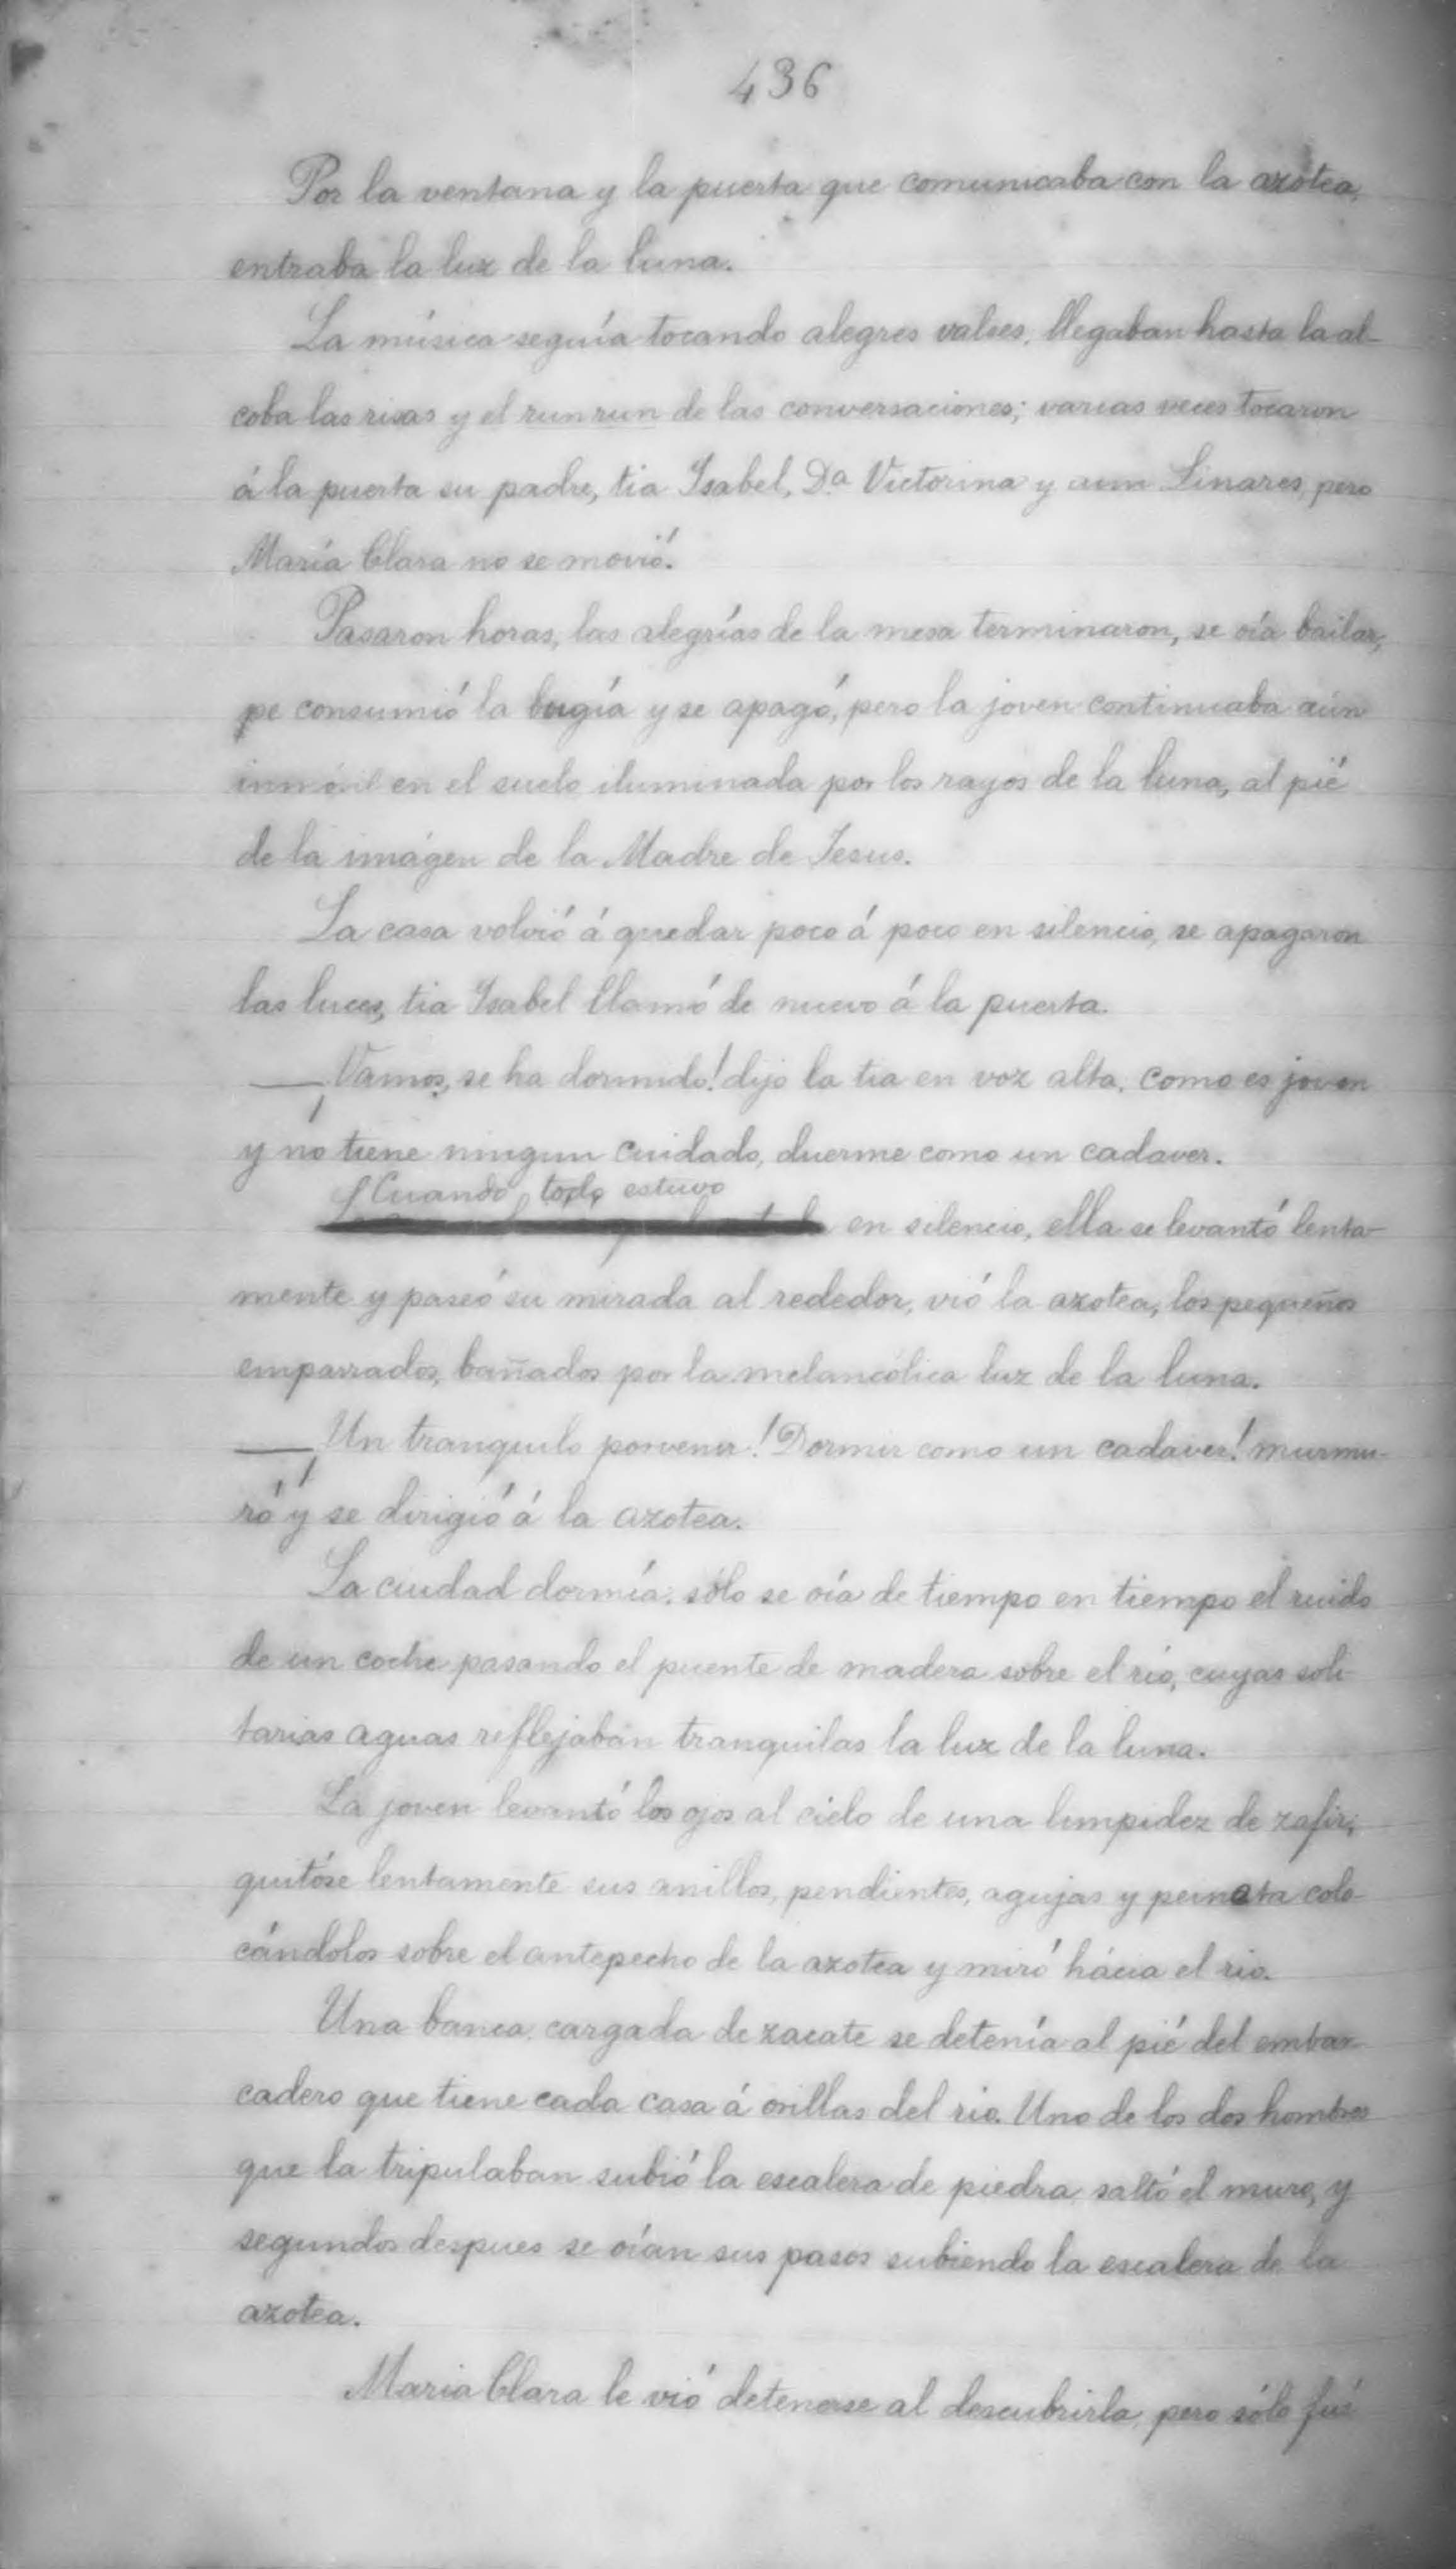 436
Por la ventana y la puerta que comunicaba con la azotea,
entraba la luz de la luna.
La música seguía tocando alegres valses, llegaban hasta la al-
coba las risas y el run run de las conversaciones; varias veces tocaron
á la puerta su padre, tia Isabel, Dª Victorina y aun Linares, pero
María Clara no se movió.
Pasaron horas, las alegrías de la mesa terminaron, se oía bailar,
se consumió la bugía y se apagó, pero la joven continuaba aún
inmóvil en el suelo iluminada por los rayos de la luna, al pié
de la imágen de la Madre de Jesus.
La casa volvió á quedar poco á poco en silencio, se apagaron
las luces, tia Isabel llamó de nuevo á la puerta.
— ¡Vamos, se ha dormido! dijo la tia en voz alta, como es joven
y no tiene ningun cuidado, duerme como un cadaver.
Cuando todo estuvo
en silencio, ella se levantó lenta-
mente y paseó su mirada al rededor, vió la azotea, los pequeños
emparrados, bañados por la melancólica luz de la luna.
— ¡Un tranquilo porvenir! ¡Dormir como un cadaver! murmu-
ró y se dirigió á la azotea.
La ciudad dormía; sólo se oía de tiempo en tiempo el ruido
de un coche pasando el puente de madera sobre el rio, cuyas soli
tarias aguas reflejaban tranquilas la luz de la luna.
La joven levantó los ojos al cielo de una limpidez de zafir;
quitóse lentamente sus anillos, pendientes, agujas y peineta colo-
cándolos sobre el antepecho de la azotea y miró hácia el rio.
Una banca cargada de zacate se detenía al pié del embar-
cadero que tiene cada casa á orillas del rio. Uno de los dos hombres
que la tripulaban subió la escalera de piedra, saltó el muro, y
segundos despues se oían sus pasos subiendo la escalera de la
azotea.
Maria Clara le vió detenerse al descubrirla, pero sólo fué